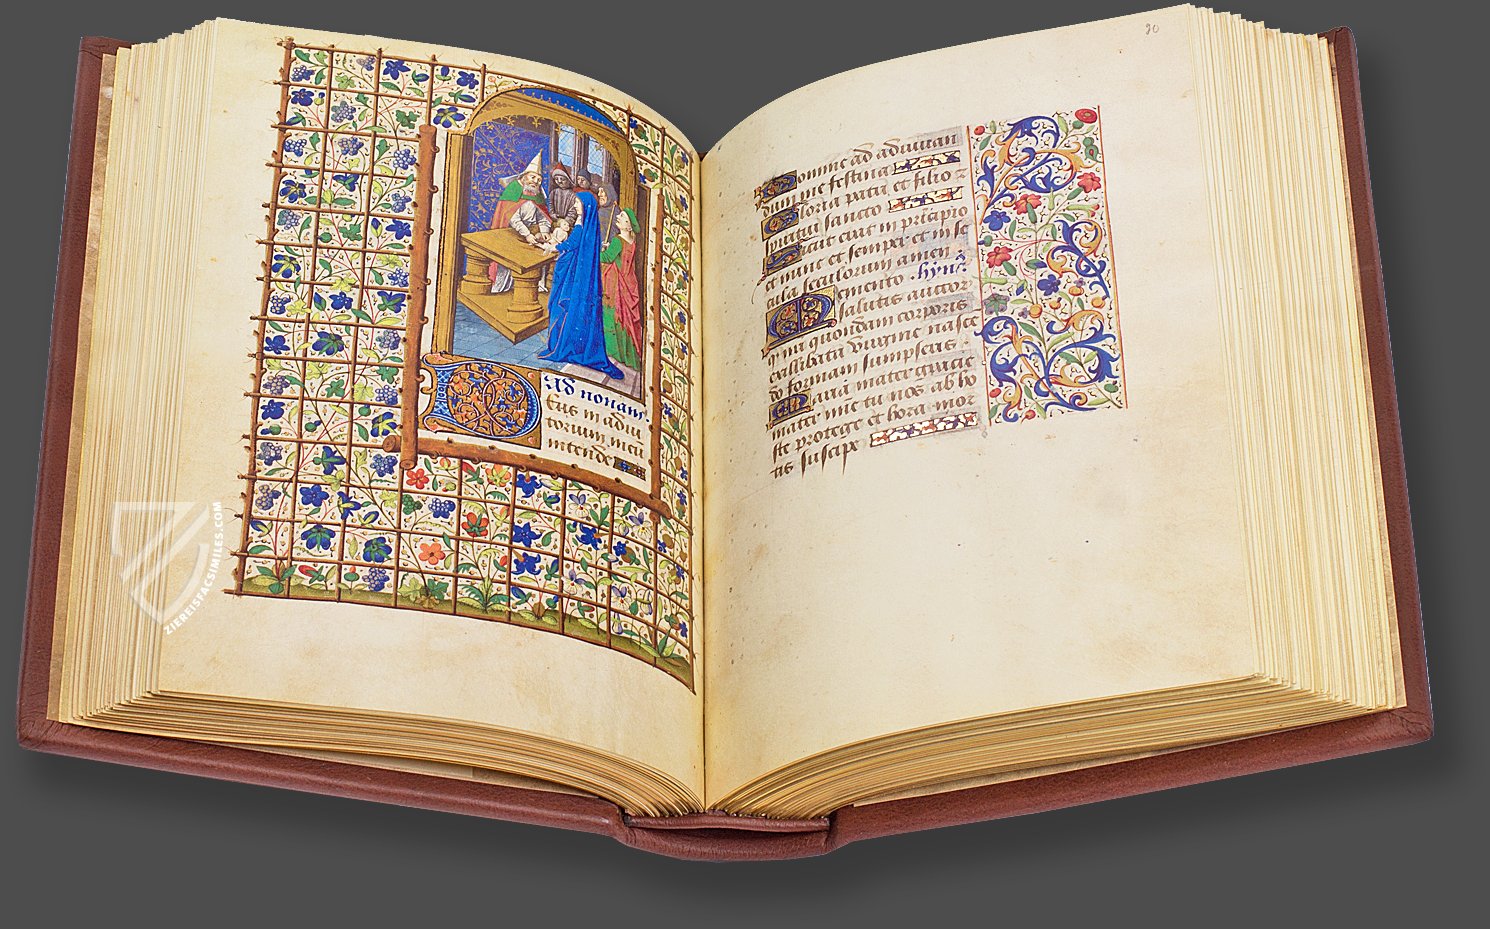 Ad nonam.
Eus in adiu
torium meu
intende
90
Domine ad adiuuan
dum me festina
Gloria patri et filio z
spiritui sancto
Sicut erat in prīcipio
et nunc et semper et in se
cula seculorum amen .hyn9.
Memento
salutis auctor
q nri quondam corporis
ex illibata virgine nascē
do formam sumpseris .
Maria mater gracie
mater mie tu nos ab ho
ste protege et hora mor
tis suscipe
ZIEREISFACSIMILES.COM